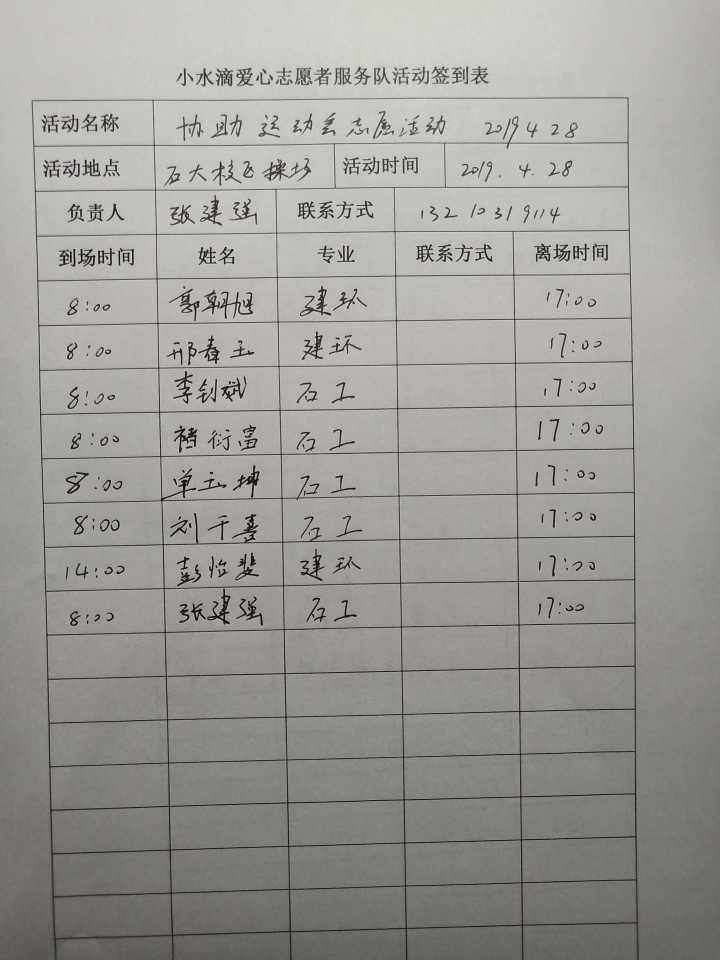 小水滴爱心志愿者服务队活动签到表
活动名称 协助运动会志愿活动 2019 4 28
活动地点 石大校区操场 活动时间 2019.4.28
负责人 张建强 联系方式 13210319114
到场时间 姓名 专业 联系方式 离场时间
8:00 郭朝旭 建环 17:00
8:00 邢春玉 建环 17:00
8:00 李钊斌 石工 17:00
8:00 褚衍富 石工 17:00
8:00 单玉坤 石工 17:00
8:00 刘千喜 石工 17:00
14:00 彭怡斐 建环 17:00
8:00 张建强 石工 17:00